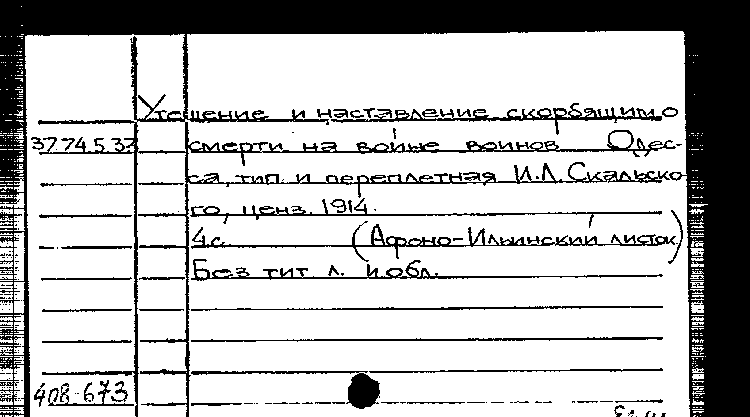 Утешение и наставление скорбящим о
37.74.5.37 смерти на войне воинов Одес-
са, тип. и переплетная И.Л. Скальско-
го, ценз. 1914.
4 с. (Афоно-Ильинский листок)
Без тит л. и обл.
408-673